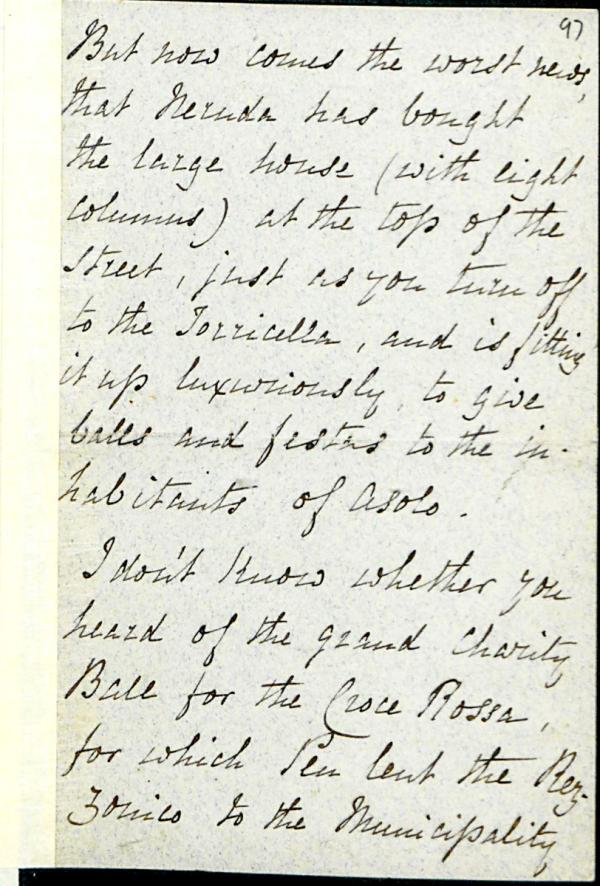 97
But now comes the worst news,
that Neruda has bought
the large house (with eight
columns) at the top of the
street, just as you turn off
to the Torricella, and is fitting
it up luxuriously, to give
balls and festas to the in-
habitants of Asolo.
I don't know whether you
heard of the grand Charity
Ball for the Croce Rossa,
for which Pen lent the Rez-
zonico to the Municipality